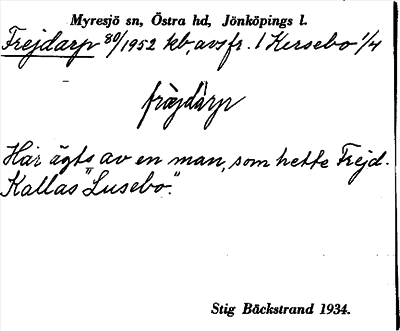 Myresjö sn, Östra hd, Jönköpings l.
Frejdarp 80/1952 kb, avsfr. 1 Kersebo 1/4
fràjdàrp
Har ägts av en man, som hette Frejd.
Kallas "Lusebo".
Stig Bäckstrand 1934.